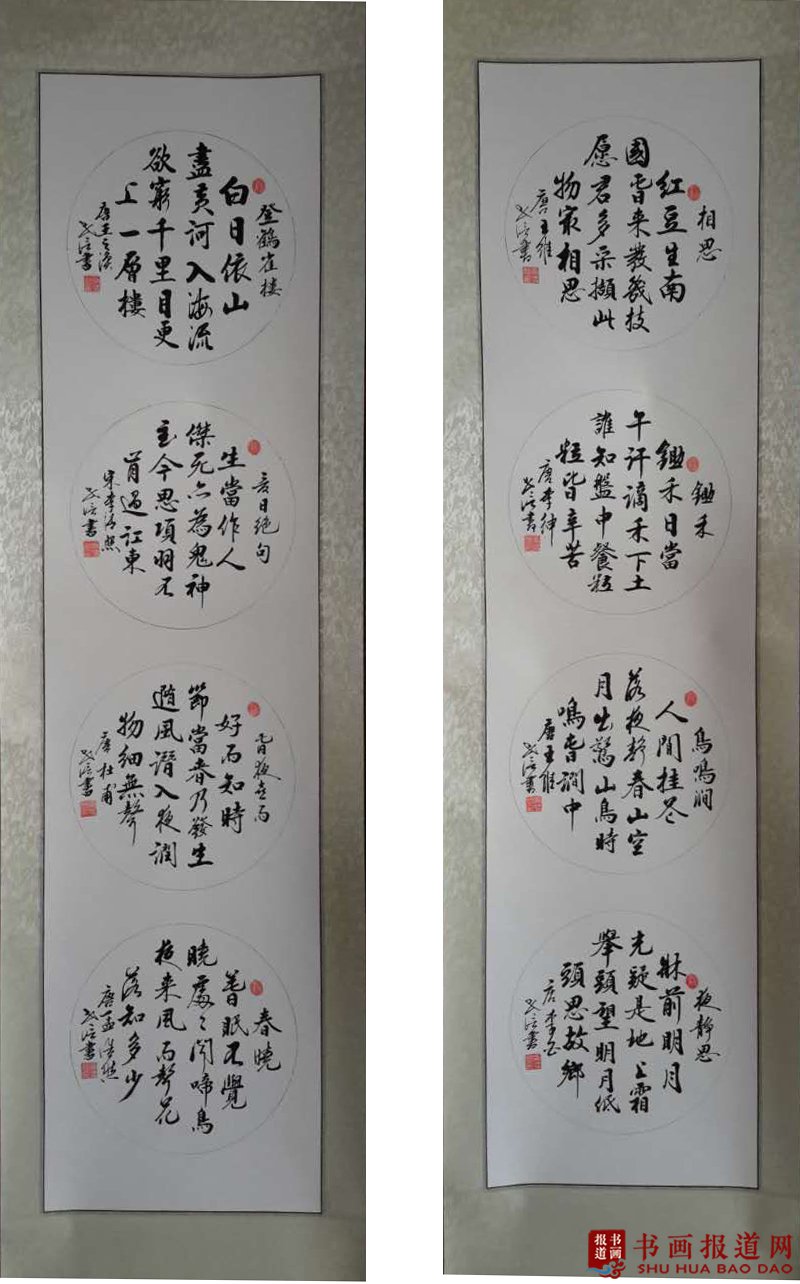 登鶴雀楼
白日依山
盡黄河入海流
欲窮千里目更
上一層樓
唐王之渙
書
夏日绝句
生當作人
傑死亦為鬼神
至今思項羽不
肯過江東
宋李清照
書
春夜喜雨
好雨知時
節當春乃發生
隨風潛入夜潤
物細無聲
唐杜甫
書
春曉
春眠不覺
曉處々聞啼鳥
夜来風雨聲花
落知多少
唐孟浩然
書
相思
红豆生南
國春来發幾枝
愿君多采擷此
物最相思
唐王维
書
鋤禾
鋤禾日當
午汗滴禾下土
誰知盤中餐粒
粒皆辛苦
唐李绅
書
鳥鳴澗
人閒桂花
落夜静春山空
月出驚山鳥時
鳴春澗中
唐王维
書
夜静思
牀前明月
光疑是地上霜
舉頭望明月低
頭思故鄉
唐李白
書
书画报道
书画报道网
SHU HUA BAO DAO